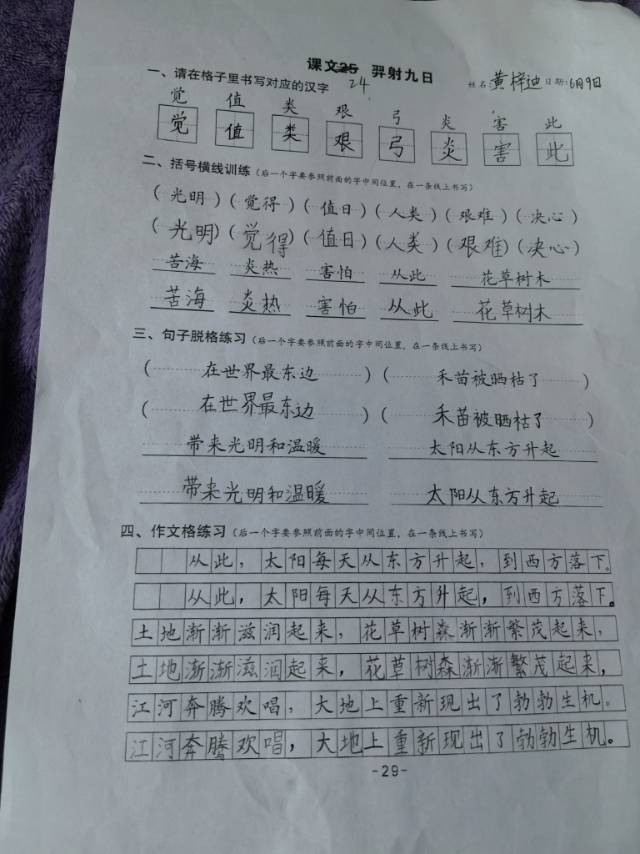 课文25 羿射九日
24
姓名 黄梓迪 日期:6月9日
一、请在格子里书写对应的汉字
觉 值 类 艰 弓 炎 害 此
觉 值 类 艰 弓 炎 害 此
二、括号横线训练（后一个字要参照前面的字中间位置，在一条线上书写）
（光明）（觉得）（值日）（人类）（艰难）（决心）
（光明）（觉得）（值日）（人类）（艰难）（决心）
苦海 炎热 害怕 从此 花草树木
苦海 炎热 害怕 从此 花草树木
三、句子脱格练习（后一个字要参照前面的字中间位置，在一条线上书写）
（在世界最东边）（禾苗被晒枯了）
（在世界最东边）（禾苗被晒枯了）
带来光明和温暖 太阳从东方升起
带来光明和温暖 太阳从东方升起
四、作文格练习（后一个字要参照前面的字中间位置，在一条线上书写）
从此，太阳每天从东方升起，到西方落下。
从此，太阳每天从东方升起，到西方落下。
土地渐渐滋润起来，花草树森渐渐繁茂起来，
土地渐渐滋润起来，花草树森渐渐繁茂起来，
江河奔腾欢唱，大地上重新现出了勃勃生机。
江河奔腾欢唱，大地上重新现出了勃勃生机。
-29-